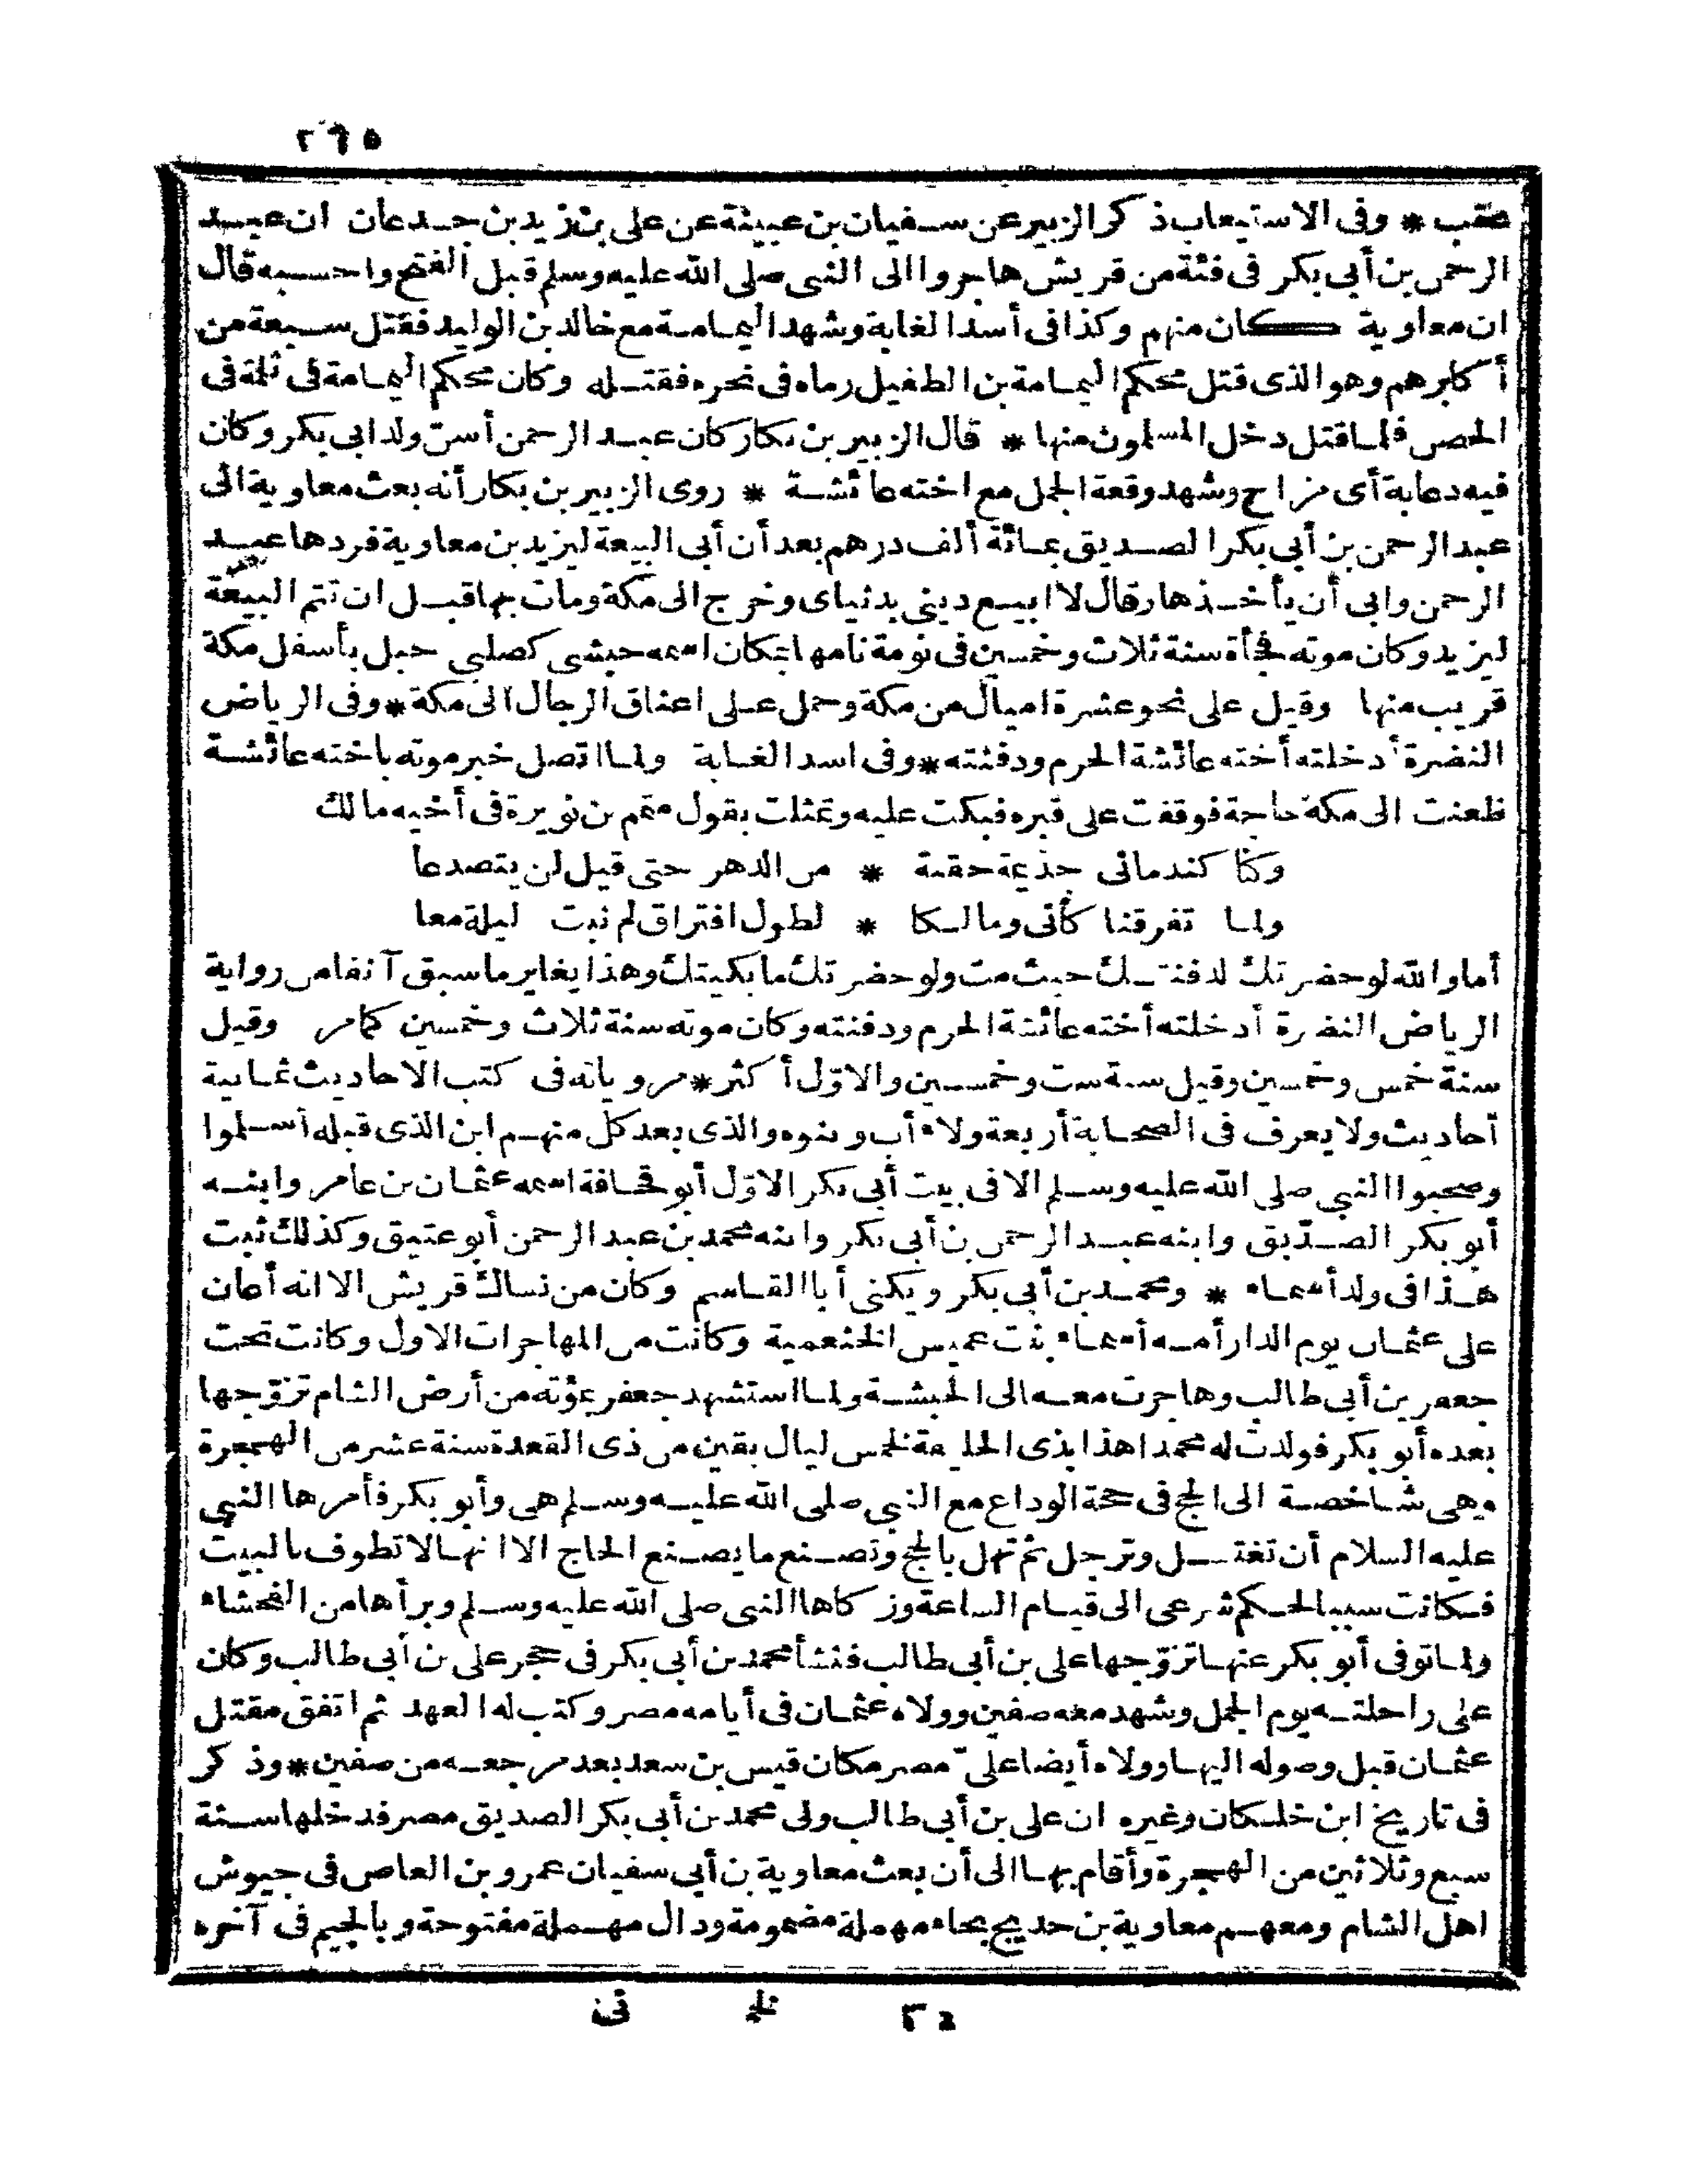 ٢٦٥
عقب * وفى الاستيعاب ذكر الزبير عن سفيان بن عيينة عن على بن زيد بن جدعان ان عبد
الرحمن بن أبى بكر فى فئة من قريش هاجروا الى النبى صلى الله عليه وسلم قبل الفتح واحسبه قال
ان معاوية كان منهم وكذا فى أسد الغابة وشهد اليمامة مع خالد بن الوليد فقتل سبعة من
أكابرهم وهو الذى قتل محكم اليمامة بن الطفيل رماه فى نحره فقتله وكان محكم اليمامة فى ثلمة فى
الحصن فلما قتل دخل المسلمون منها * قال الزبير بن بكار كان عبد الرحمن أسن ولد ابى بكر وكان
فيه دعابة أى مزاح وشهد وقعة الجمل مع اخته عائشة * روى الزبير بن بكار أنه بعث معاوية الى
عبد الرحمن بن أبى بكر الصديق بمائة ألف درهم بعد أن أبى البيعة ليزيد بن معاوية فردها عبد
الرحمن وابى أن يأخذها وقال لا ابيع دينى بدنياى وخرج الى مكة ومات بها قبل ان تتم البيعة
ليزيد وكان موته فجأة سنة ثلاث وخمسين فى نومة نامها بمكان اسمه حبشى كصلبى جبل بأسفل مكة
قريب منها وقيل على نحو عشرة اميال من مكة وحمل على اعناق الرجال الى مكة * وفى الرياض
النضرة أدخلته أخته عائشة الحرم ودفنته * وفى اسد الغابة ولما اتصل خبر موته باخته عائشة
ظعنت الى مكة حاجة فوقفت على قبره فبكت عليه وتمثلت بقول متمم بن نويرة فى أخيه مالك
وكنا كندمانى جذيمة حقبة * من الدهر حتى قيل لن يتصدعا
ولما تفرقنا كأنى ومالكا * لطول افتراق لم نبت ليلة معا
أما والله لو حضرتك لدفنتك حيث مت ولو حضرتك ما بكيتك وهذا يغاير ما سبق آنفا من رواية
الرياض النضرة أدخلته أخته عائشة الحرم ودفنته وكان موته سنة ثلاث وخمسين كما مر وقيل
سنة خمس وخمسين وقيل سنة ست وخمسين والاوّل أكثر * مروياته فى كتب الاحاديث ثمانية
أحاديث ولا يعرف فى الصحابة أربعة ولاء أب وبنوه والذى بعد كل منهم ابن الذى قبله أسلموا
وصحبوا النبى صلى الله عليه وسلم الا فى بيت أبى بكر الاوّل أبو قحافة اسمه عثمان بن عامر وابنه
أبو بكر الصدّيق وابنه عبد الرحمن بن أبى بكر وابنه محمد بن عبد الرحمن أبو عتيق وكذلك ثبت
هذا فى ولد أسماء * ومحمد بن أبى بكر ويكنى أبا القاسم وكان من نساك قريش الا انه أعان
على عثمان يوم الدار أمه أسماء بنت عميس الخثعمية وكانت من المهاجرات الاول وكانت تحت
جعفر بن أبى طالب وهاجرت معه الى الحبشة ولما استشهد جعفر بمؤتة من أرض الشام تزوّجها
بعده أبو بكر فولدت له محمدا هذا بذى الحليفة لخمس ليال بقين من ذى القعدة سنة عشر من الهجرة
وهى شاخصة الى الحج فى حجة الوداع مع النبى صلى الله عليه وسلم هى وأبو بكر فأمرها النبى
عليه السلام أن تغتسل وترجل ثم تهل بالحج وتصنع ما يصنع الحاج الا انها لا تطوف بالبيت
فكانت سببا لحكم شرعى الى قيام الساعة وزكاها النبى صلى الله عليه وسلم وبرأها من الفحشاء
ولما توفى أبو بكر عنها تزوّجها على بن أبى طالب فنشأ محمد بن أبى بكر فى حجر على بن أبى طالب وكان
على راحلته يوم الجمل وشهد معه صفين وولاه عثمان فى أيامه مصر وكتب له العهد ثم اتفق مقتل
عثمان قبل وصوله اليها وولاه أيضا علىّ مصر مكان قيس بن سعد بعد مرجعه من صفين * وذكر
فى تاريخ ابن خلكان وغيره ان على بن أبى طالب ولى محمد بن أبى بكر الصديق مصر فدخلها سنة
سبع وثلاثين من الهجرة وأقام بها الى أن بعث معاوية بن أبى سفيان عمرو بن العاص فى جيوش
اهل الشام ومعهم معاوية بن حديج بحاء مهملة مضمومة ودال مهملة مفتوحة وبالجيم فى آخره